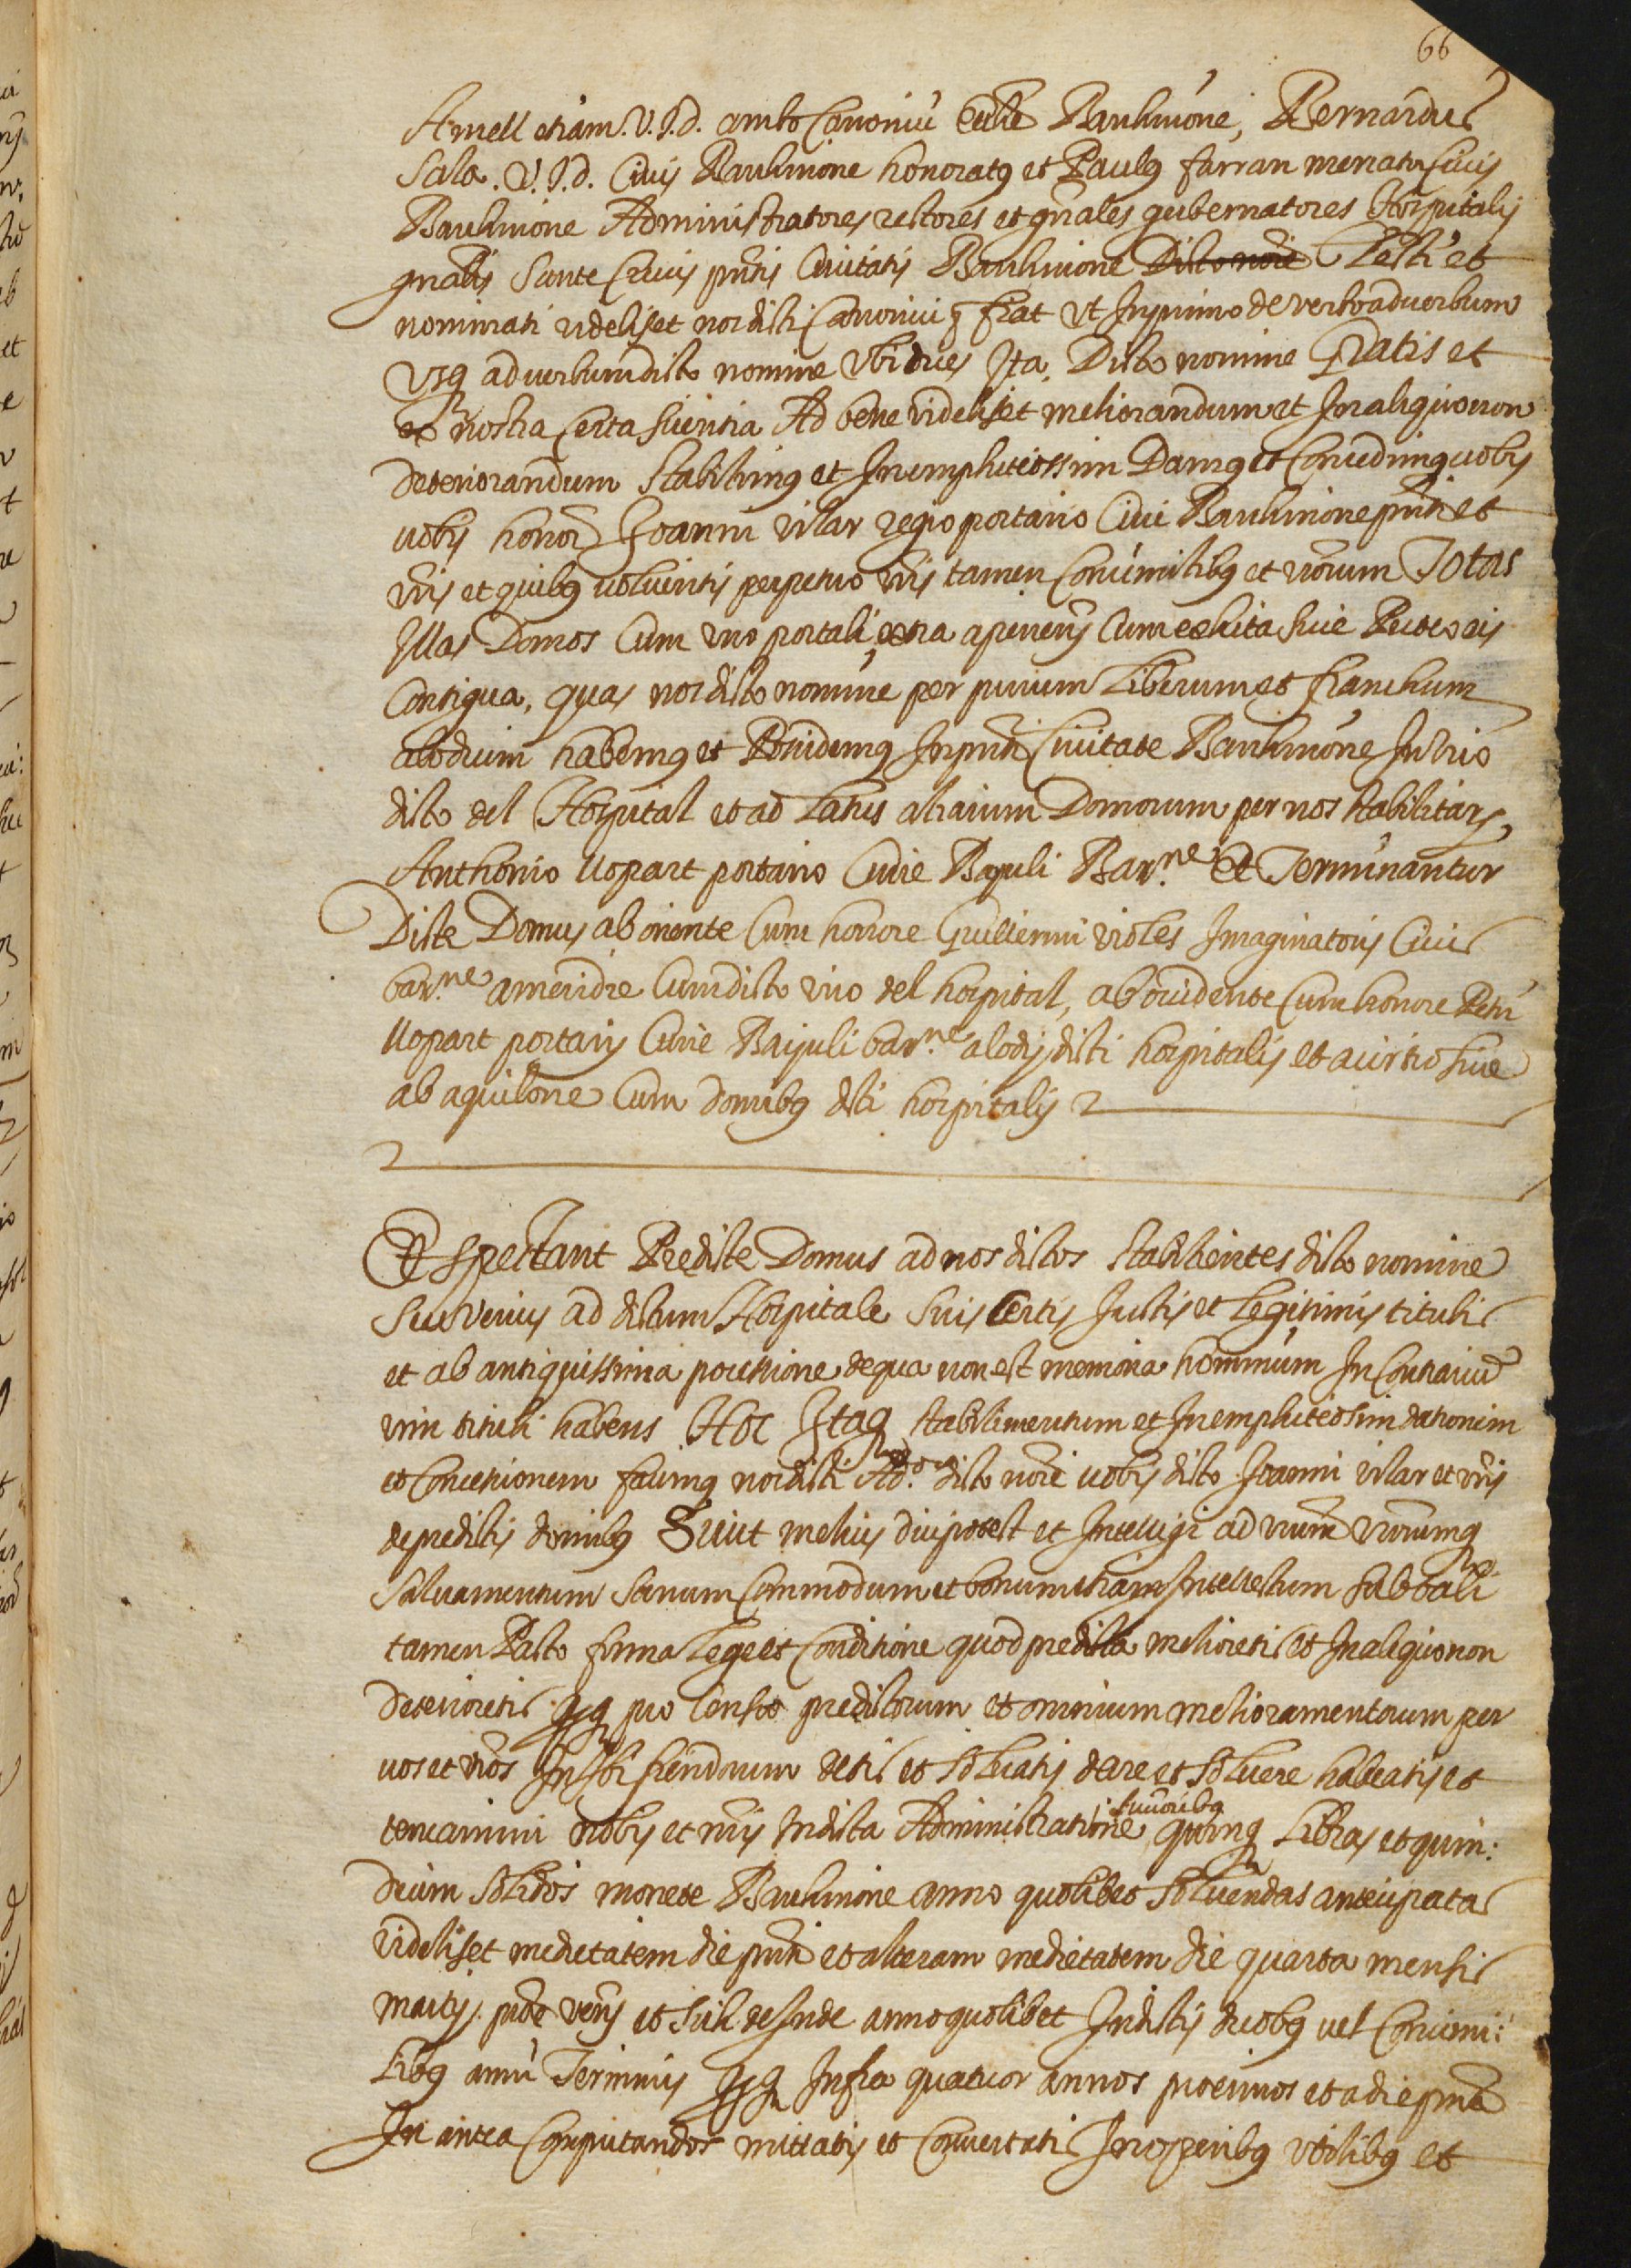 66
Amell etiam. V.J.d. ambo Canonici Ecclie Barchinone, Bernardus
Sala. V.J.d. Civis Barchinone honoratus et Paulus farran mercator Civis
Barchinone Administratores rectores et gnales gubernatores Hospitalis
gnalis Sancte Crucis pntis Civitatis Barchinone Dicto noie Electi et
nominati videliset nos dicti Canonici fiat Vt Inprimo de verbo ad verbum
Vsq ad verbum dicto nomine Vbi dues Ita. Dicto nomine Gratis et
ex nostra Certa scientia Ad bene videliset meliorandum et Inaliquo non
deteriorandum Stabilimus et Inemphiteossim Damus et Concedimus vobis
vobis honor Joanni vilar regio portario Civi Barchinone pnti et
vris et quibus volueritis perpetuo vris tamen Consimilibus et vrorum Totas
Illas Domos Cum vno portali extra aperiens Cum exhita sive
Contigua, quas nos dicto nomine per purum Liberum et franchum
alodium habemus et Possidemus Inpnti Civitate Barchinone In vico
dicto del Hospital et ad Latus aliarum Domorum per nos stabilitars,
Anthonio llopart portario Curie Bajuli Bar.ne Et Terminantur
Dicte Domus ab oriente Cum honore Guillermi violes Imaginatoris Civis
bar.ne a meridie Cum dicto vico del hospital, ab occidente Cum honore Petri
llopart portarij Curie Baijuli bar.ne alodij dicti hospitalis et a circio sive
ab aquilone Cum domibus dicti hospitalis
Et Spectant Predicte Domus ad nos dictos stabilientes dicto nomine
Seu verius ad dictum Hospitale suis Certis Justis et Legitimis titulis
et ab antiquissima possessione de qua non est memoria hominum In Contrarium
vim tituli habens Hoc Itaq stabilimentum et Inemphiteosim dationem
et Concessionem facimus nos dicti Ad.res dicto noie vobis dicto Joanni vilar et vris
de predictis domibus Sicut melius dici potest et Intelligi ad vrum vrorumq
Salvamentum Sanum Commodum et bonum etiam Intellectum Sub tali
tamen Pacto forma Lege et Conditione quod predicta melioretis et Inaliquo non
deterioretis Ipq pro Censu predictorum et omnium melioramentorum per
vos et vros In Ibi fiendorum detis et Solvatis dare et Solvere habeatis et
teneamini nobis et nris Indicta Administratione successoribus quinq Libras et quin:
decim Solidos monete Barchinone anno quolibet Solvendas anticipatas
videliset medietatem die pnti et alteram medietatem die quarta mensis
martij. pxe veni et Sich deInde anno quolibet Indictis duobus vel Consimi:
libus anni Terminis Ipq Infra quatuor annos proximos et a die pnti
In antea Computandos mittatis et Convertatis Inoperibus vtilibus et